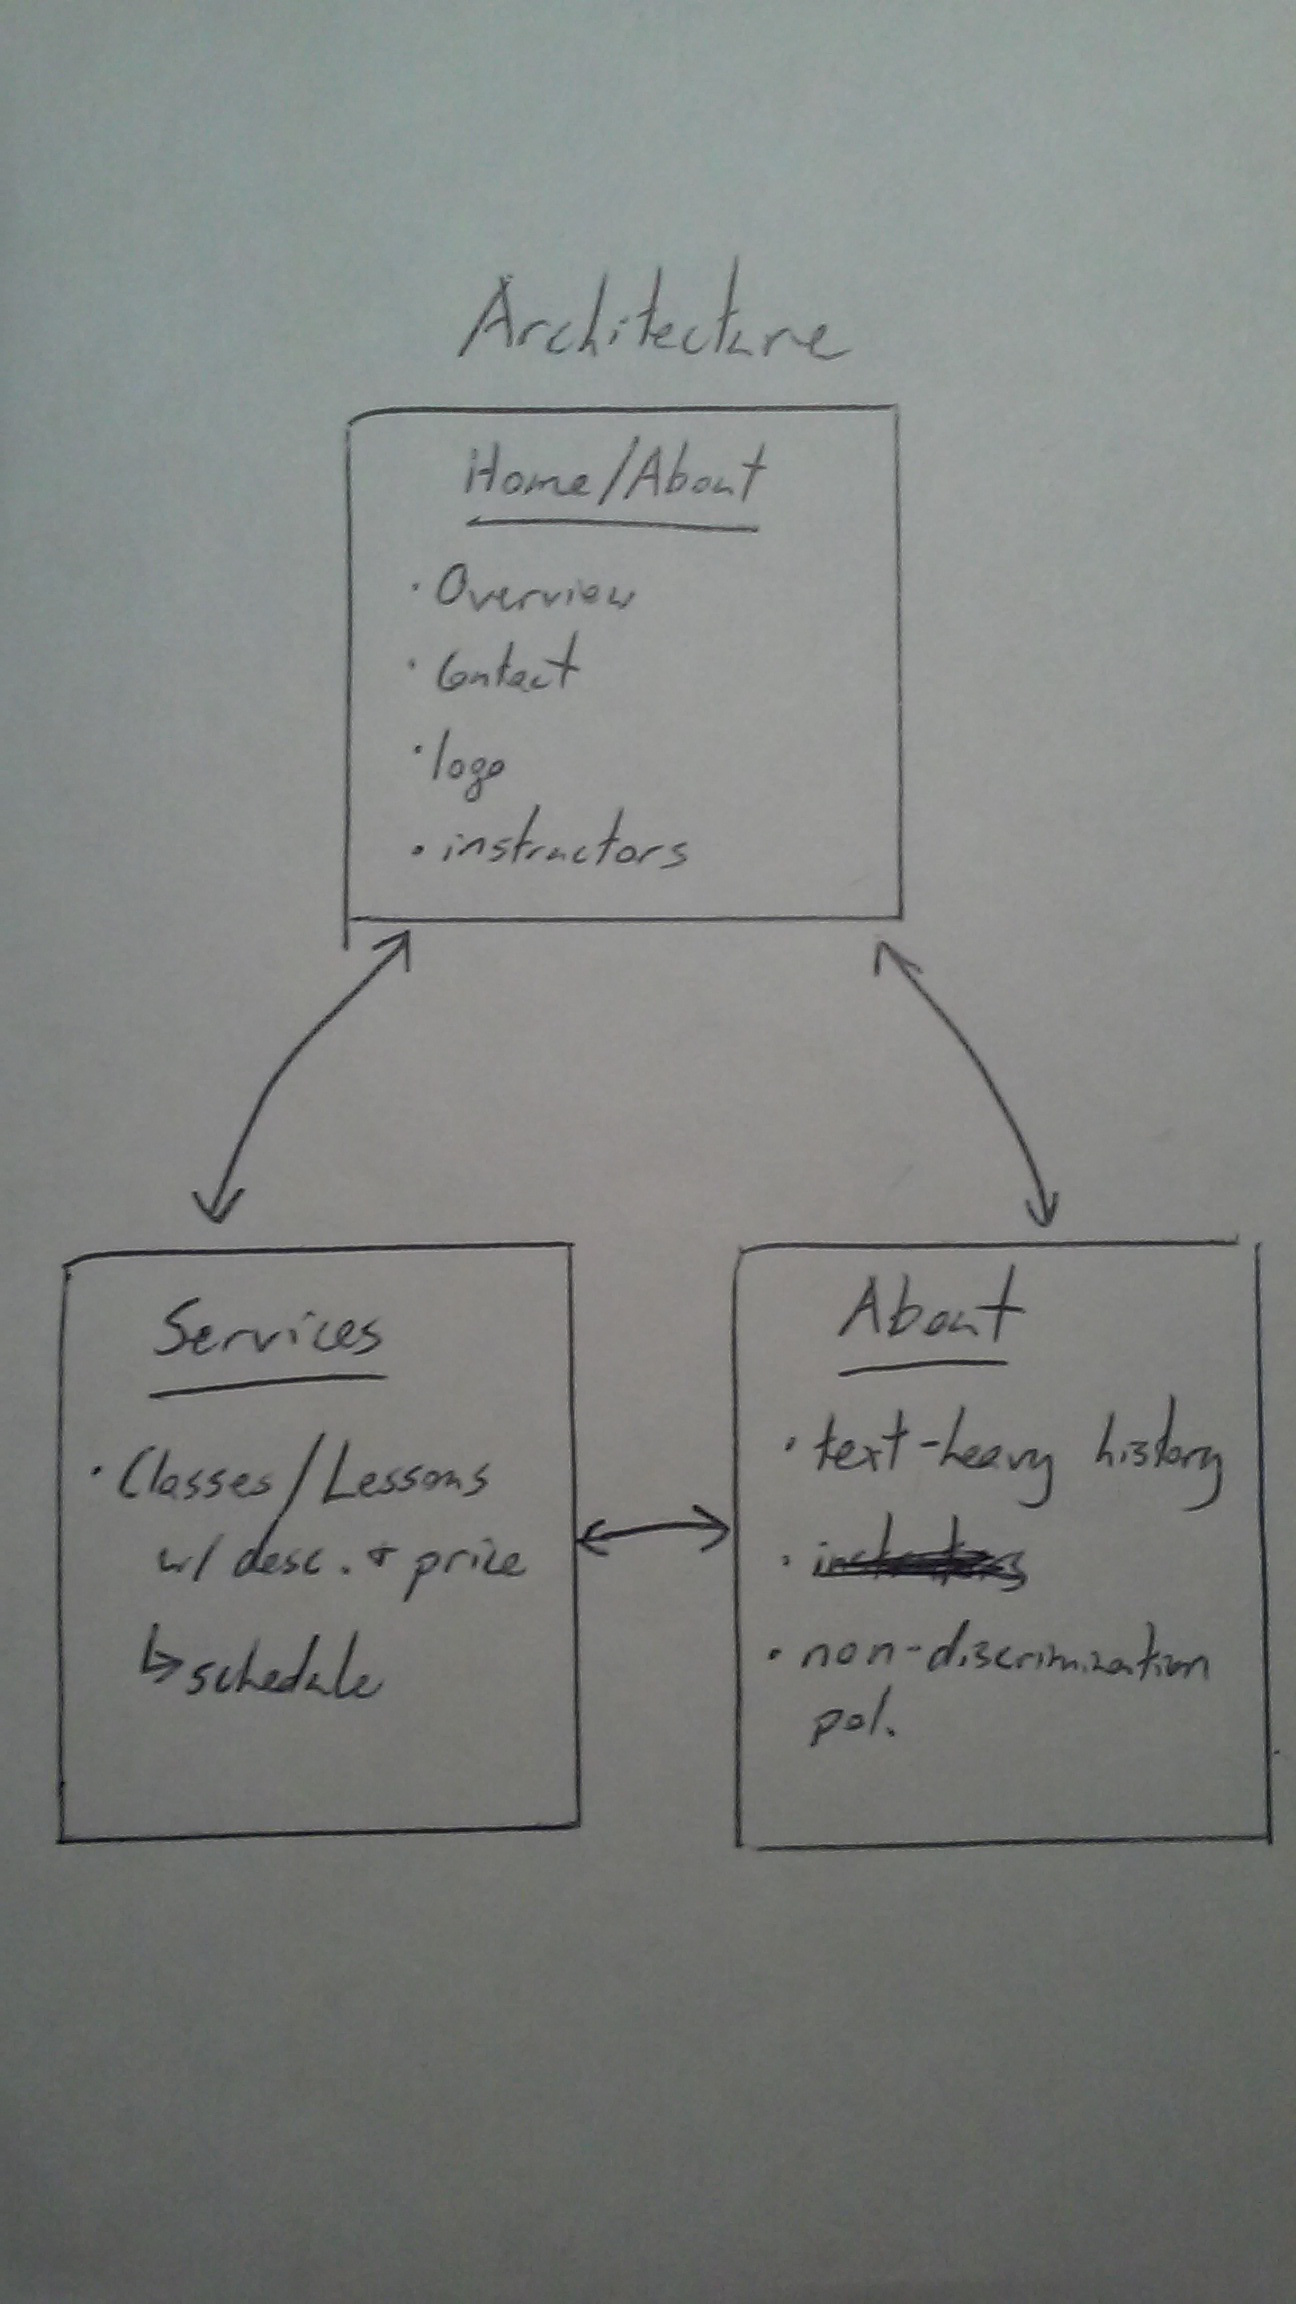 Architecture
Home/About
· Overview
· Contact
· logo
· instructors
Services
· Classes/Lessons
w/ desc. + price
↳ schedule
About
· text-heavy history
·
· non-discrimination
pol.